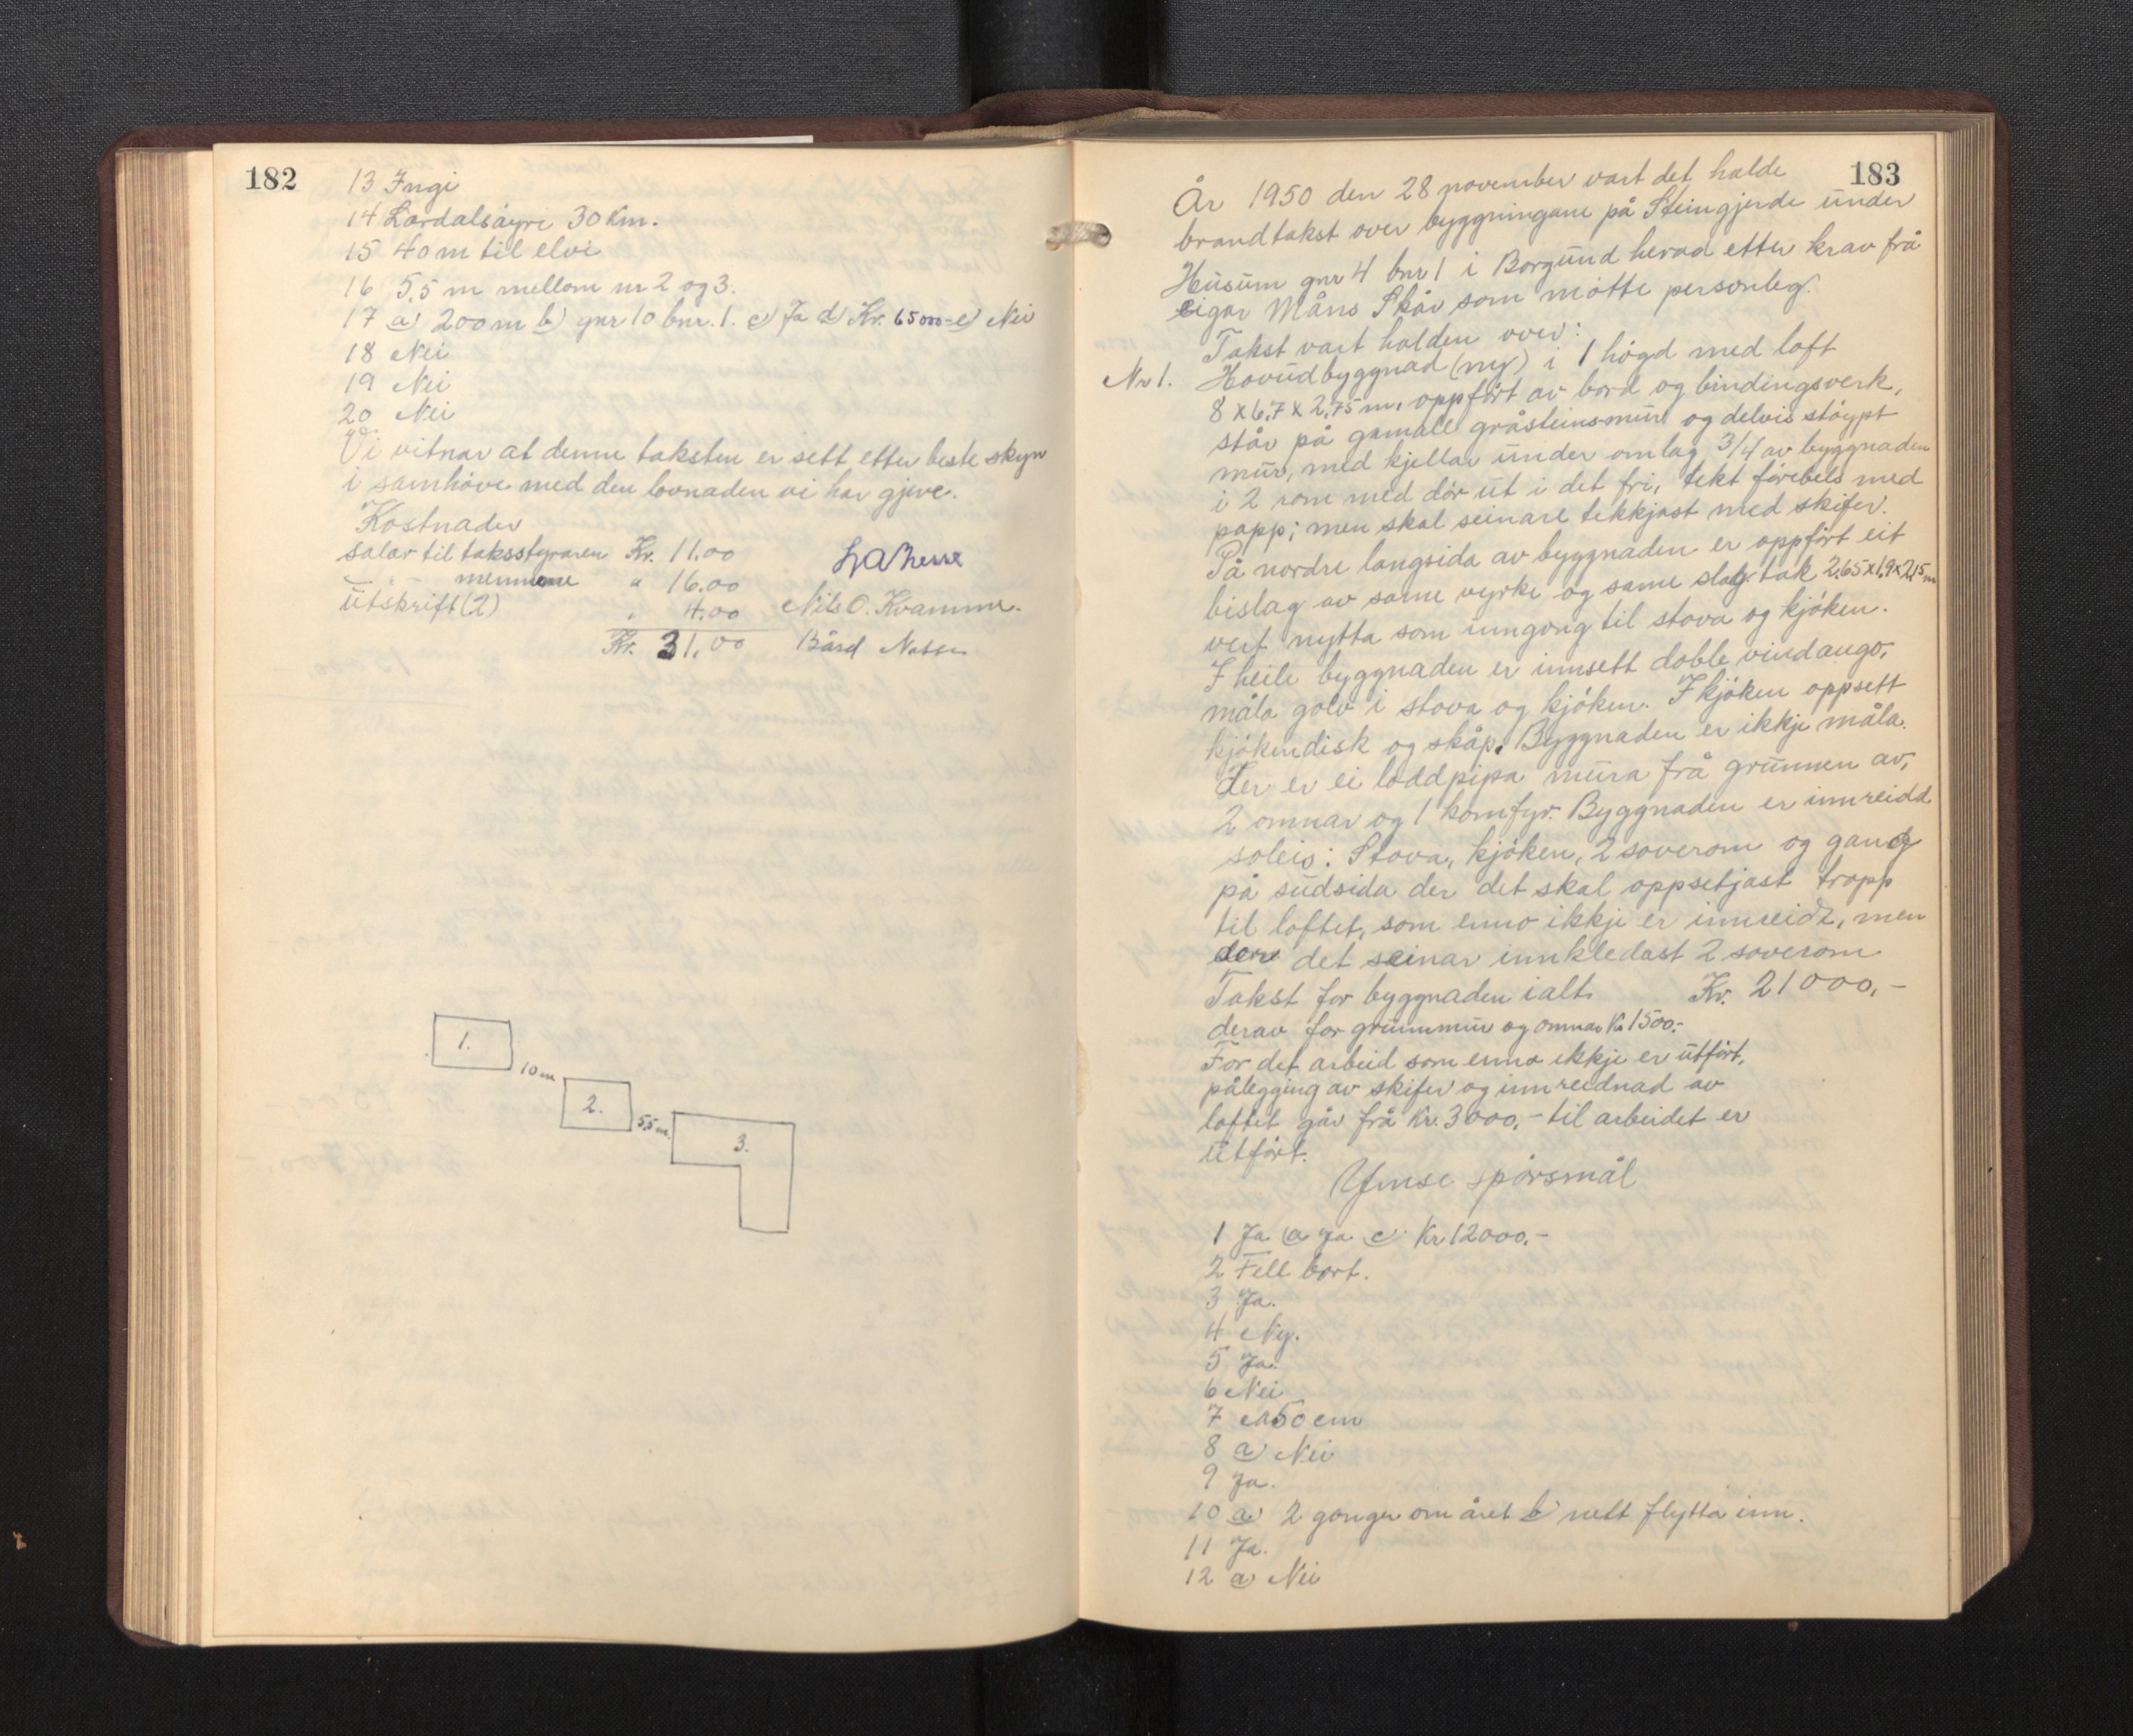 182
13 Ingi
14 Lærdalsöyri 30 Km.
15 40 m til elvi
16 5,5 m mellom nr 2 og 3.
17 a) 200 m b) gnr 10 bnr. 1. c) Ja d) Kr. 6500.- e) Nei
18 Nei
19 Nei
20 Nei
Vi vitnar at denne taksten er sett etter beste skyn
i samhöve med den lovnaden vi har gjeve.
Kostnader
Salær til taksstyraren Kr. 11.00
" - mennene " 16.00
Utskrift (2) " 4.00
Nils O. Kvamme.
Kr. 31.00 Bård
1.
10 m
2.
5,5 m.
3.
183
År 1950 den 28 november vart det halde
brandtakst over byggningane på Steingjerde under
Husum gnr 4 bnr 1 i Borgund herad etter krav frå
eigar Måns Skår som mötte personleg.
Takst vart halden over:
Nr 1. Hovudbyggnad (ny) i 1 högd med loft
8 x 6,7 x 2,75 m. oppfört av bord og bindingsverk,
står på gamall gråsteinsmur og delvis stöypt
mur, med kjellar under omlag 3/4 av byggnaden
i 2 rom med dör ut i det fri, tekt förebels med
papp; men skal seinare tekkjast med skifer.
På nordre langsida av byggnaden er oppfört eit
bislag av same vyrke og same slag tak 2,65x1,9x2,15 m
vert nytta som inngong til stova og kjöken.
I heile byggnaden er innsett doble vindaugo,
måla golv i stova og kjöken. I kjöken oppsett
kjökendisk og skåp. Byggnaden er ikkje måla.
Der er ei loddpipa mura frå grunnen av,
2 omnar og 1 komfyr. Byggnaden er innreidd
soleis: Stova, kjöken, 2 soverom og gang
på sudsida der det skal oppsetjast tropp
til loftet, som enno ikkje er innreidt, men
der det seinar innkledast 2 soverom
Takst for byggnaden ialt. Kr. 21000,-
derav for grunnmur og omnar Kr 1500.-
For det arbeid som enno ikkje er utfört,
pålegging av skifer og innreidnad av
loftet går frå Kr. 3000,- til arbeidet er
utfört.
Ymse spörsmål
1 Ja a) Ja c) Kr 12000.-
2 Fell bort.
3 Ja.
4 Ny.
5 Ja.
6 Nei
7 50 cm
8 a) Nei
9 Ja.
10 a) 2 gonger om året b) nett flytta inn.
11 Ja.
12 a) Nei